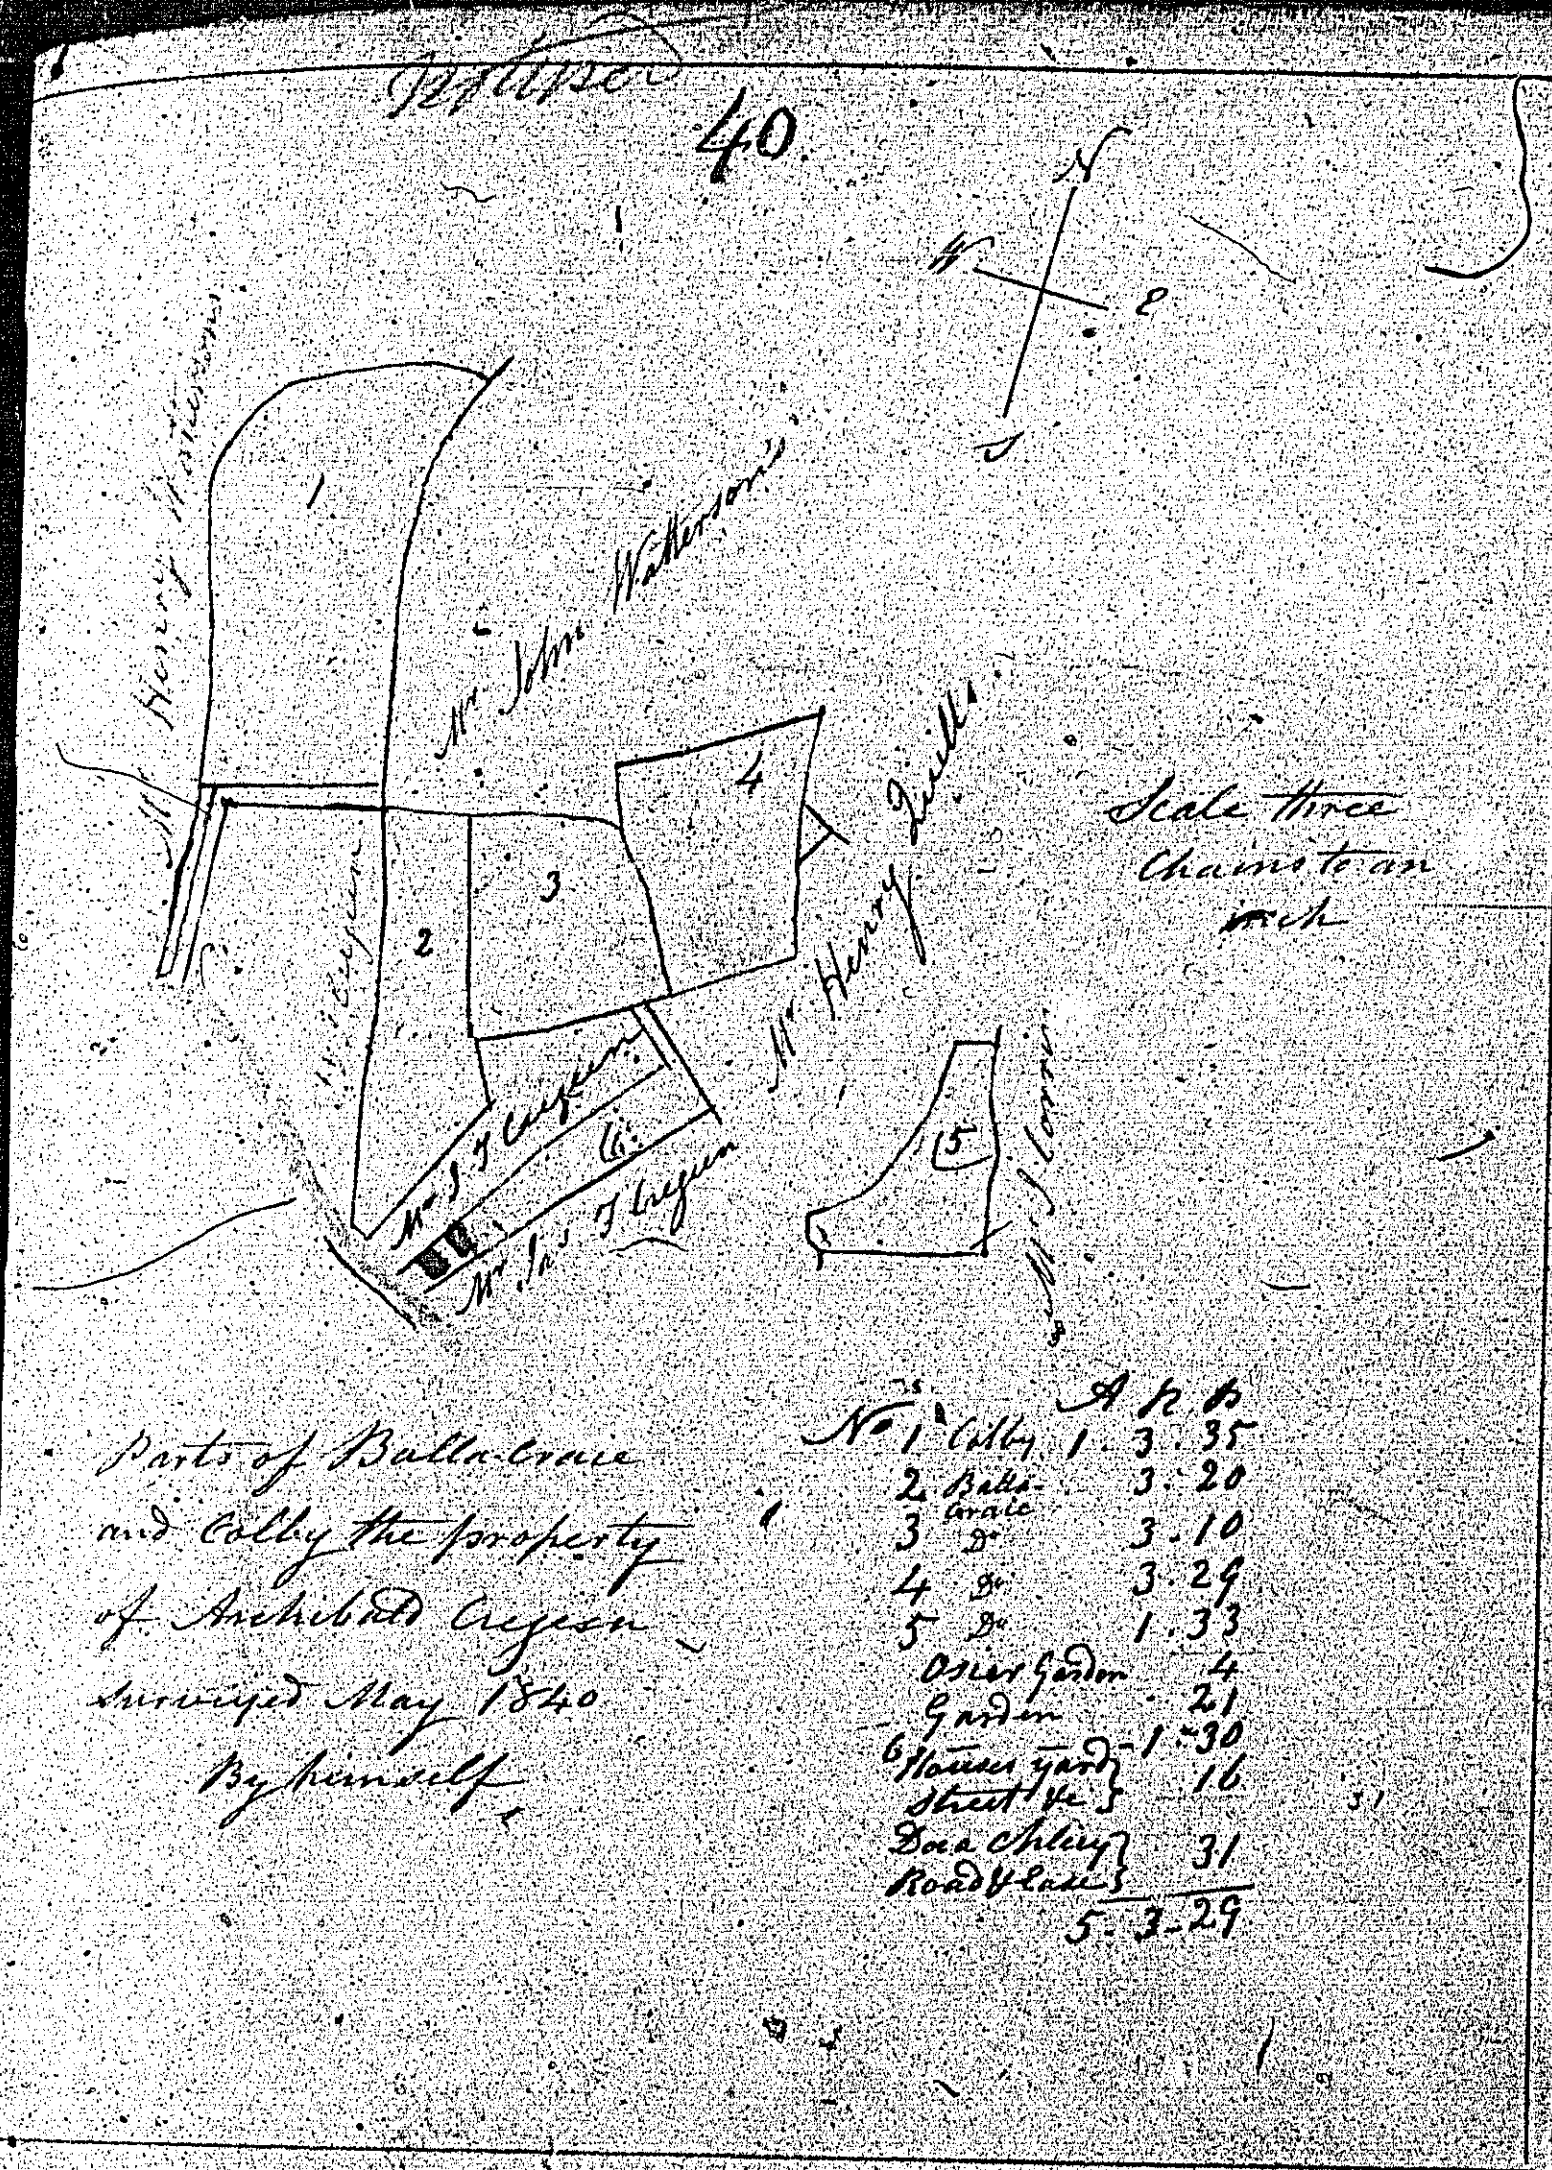 40
N
W
E
S
Mr Henry Watterson's
1
Mr John Watterson's
4
3
2
Cregeen
Mr Henry Quill's
Scale three
Chains to an
inch
Mr J. T Cregeen
G.
Mr Jas T Cregeen
5
Mr J
Parts of Balla-Craie
and Colby the property
of Archibald Cregeen
surveyed May 1840
By himself
Nos A R P
1 Colby 1. 3. 35
2 Balla-Craie 3. 20
3 Do 3. 10
4 Do 3. 29
5 Do 1. 33
Osier Garden 4
Garden 21
6 - 1. 30
Houses yard
Street &c } 16
Road & Lane } 31
5. 3. 29